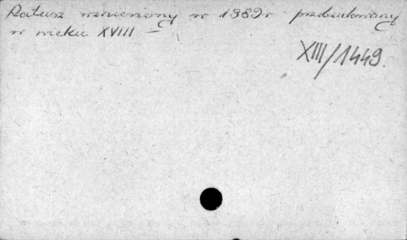 Ratusz wzniesiony w 1389 r przebudowany
w wieku XVIII –
XIII/1449.